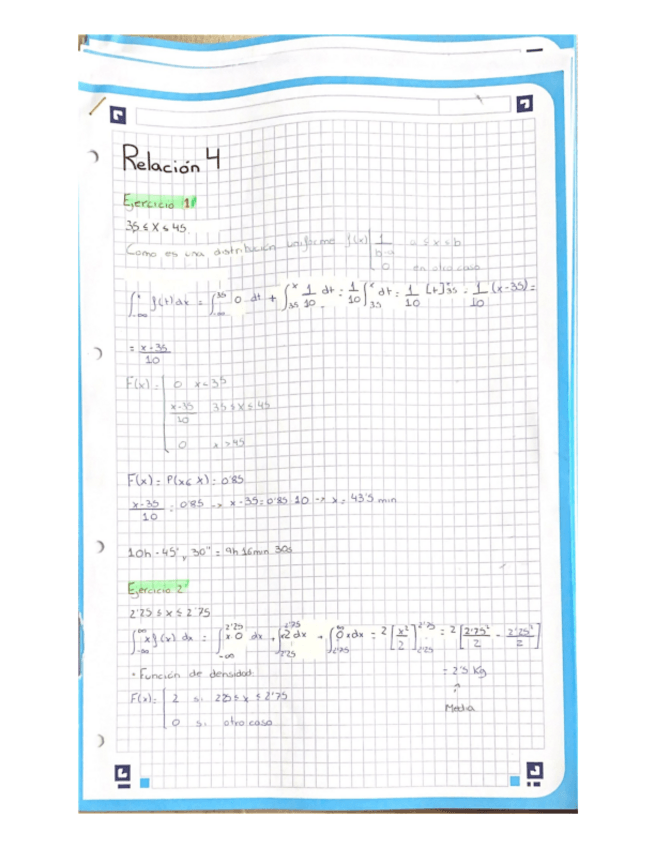 Relación 4
Ejercicio 1
35 ≤ X ≤ 45
Como es una distribución uniforme f(x) | 1/b-a a ≤ x ≤ b
0 en otro caso
∫_{-∞}^{x} f(t) dx = ∫_{-∞}^{35} 0 dt + ∫_{35}^{x} 1/10 dt = 1/10 ∫_{35}^{x} dt = 1/10 [t]_{35}^{x} = 1/10 (x-35) =
= x-35/10
F(x) = | 0 x < 35
x-35/10 35 ≤ x ≤ 45
0 x > 45
F(x) = P(x ≤ X) = 0'85
x-35/10 = 0'85 -> x-35 = 0'85·10 -> x = 43'5 min
10h - 45', 30" = 9h 16min 30s
Ejercicio 2
2'25 ≤ x ≤ 2'75
∫_{-∞}^{∞} x f(x) dx = ∫_{-∞}^{2'25} x·0 dx + ∫_{2'25}^{2'75} x2 dx + ∫_{2'75}^{∞} 0x dx = 2 [x²/2]_{2'25}^{2'75} = 2 [2'75²/2 - 2'25²/2]
• Función de densidad:
= 2'5 Kg
F(x) = | 2 si 2'25 ≤ x ≤ 2'75
Media
0 si otro caso